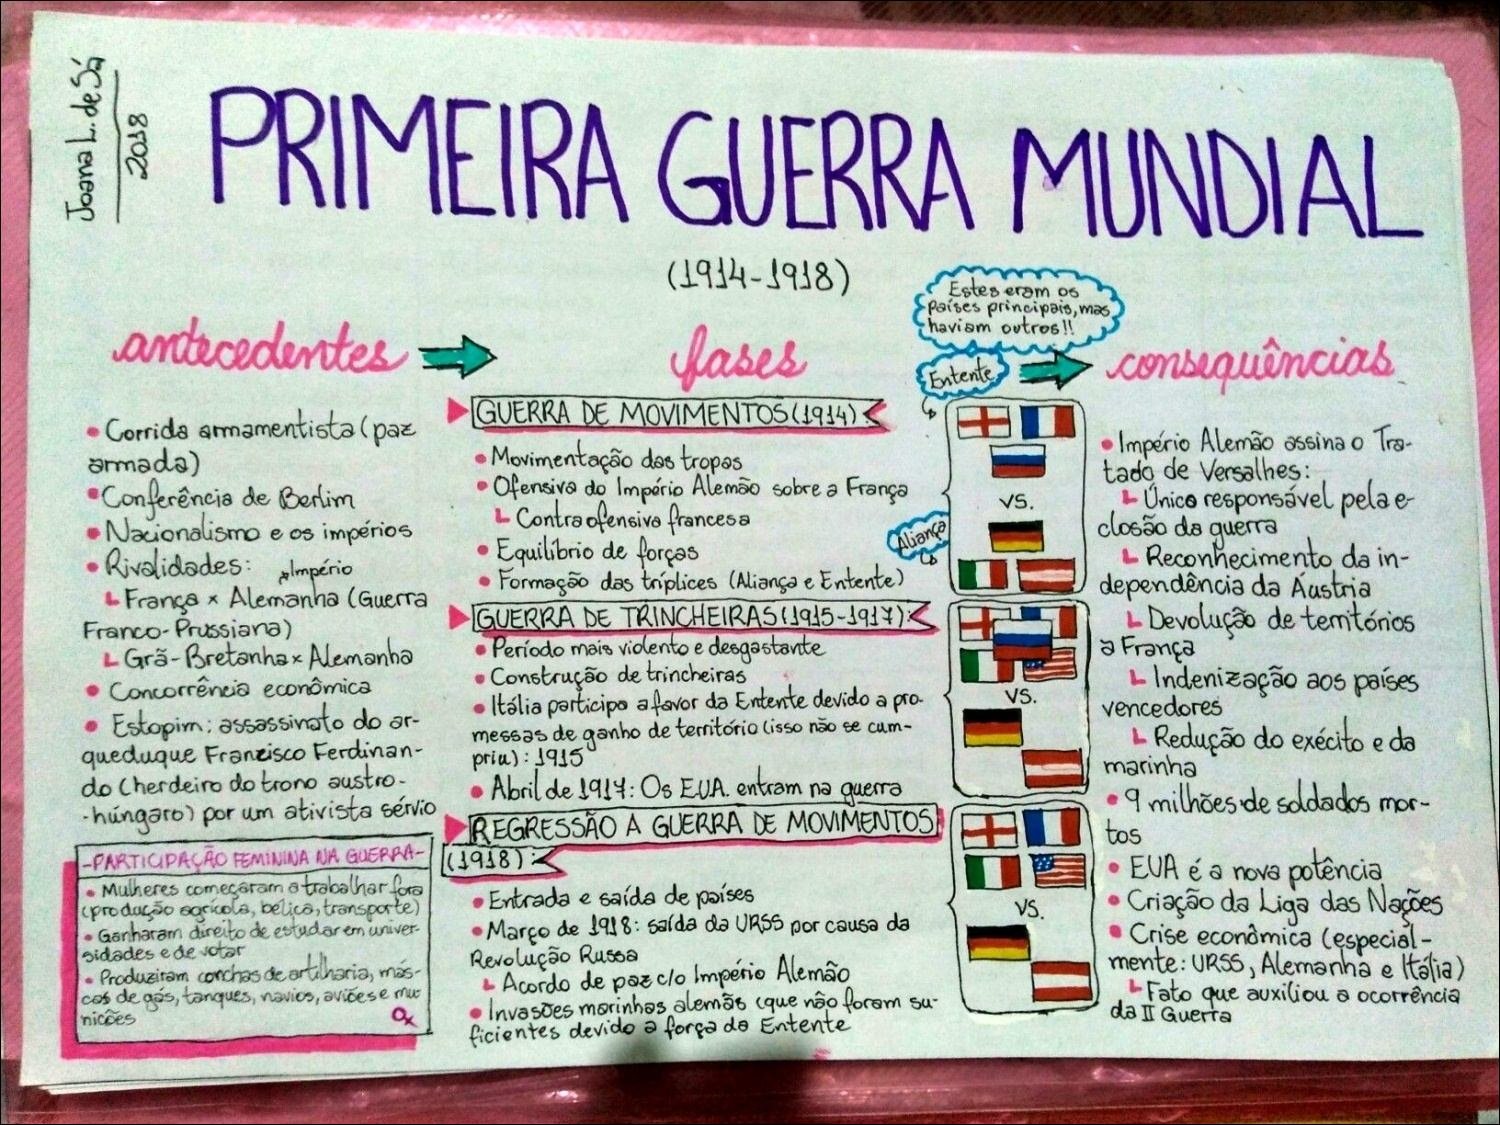 Joana L. de Sá
2018
PRIMEIRA GUERRA MUNDIAL
(1914-1918)
antecedentes
• Corrida armamentista (paz
armada)
• Conferência de Berlim
• Nacionalismo e os impérios
• Rivalidades:
Império
França x Alemanha (Guerra
Franco-Prussiana)
Grã-Bretanha x Alemanha
• Concorrência econômica
• Estopim: assassinato do ar-
queduque Francisco Ferdinan-
do (herdeiro do trono austro-
-húngaro) por um ativista sérvio
-PARTICIPAÇÃO FEMININA NA GUERRA-
• Mulheres começaram a trabalhar fora
(produção agrícola, bélica, transporte)
• Ganharam direito de estudar em univer-
sidades e de votar
• Produziram conchas de artilharia, más-
cas de gás, tanques, navios, aviões e mu
nições
fases
GUERRA DE MOVIMENTOS (1914)
• Movimentação das tropas
• Ofensiva do Império Alemão sobre a França
Contra ofensiva francesa
• Equilíbrio de forças
• Formação das tríplices (Aliança e Entente)
GUERRA DE TRINCHEIRAS (1915-1917):
• Período mais violento e desgastante
• Construção de trincheiras
• Itália participa a favor da Entente devido a pro-
messas de ganho de território (isso não se cum-
priu): 1915
• Abril de 1917: Os EUA. entram na guerra
REGRESSÃO A GUERRA DE MOVIMENTOS
(1918):
• Entrada e saída de países
• Março de 1918: saída da URSS por causa da
Revolução Russa
Acordo de paz c/o Império Alemão
• Invasões marinhas alemãs (que não foram su-
ficientes devido a força da Entente
Estes eram os
países principais, mas
haviam outros!!
Entente
vs.
Aliança
vs.
vs.
consequências
• Império Alemão assina o Tra-
tado de Versalhes:
Único responsável pela e-
closão da guerra
Reconhecimento da in-
dependência da Áustria
Devolução de territórios
a França
Indenização aos países
vencedores
Redução do exécito e da
marinha
• 9 milhões de soldados mor-
tos
• EUA é a nova potência
• Criação da Liga das Nações
• Crise econômica (especial-
mente: URSS, Alemanha e Itália)
Fato que auxiliou a ocorrência
da II Guerra